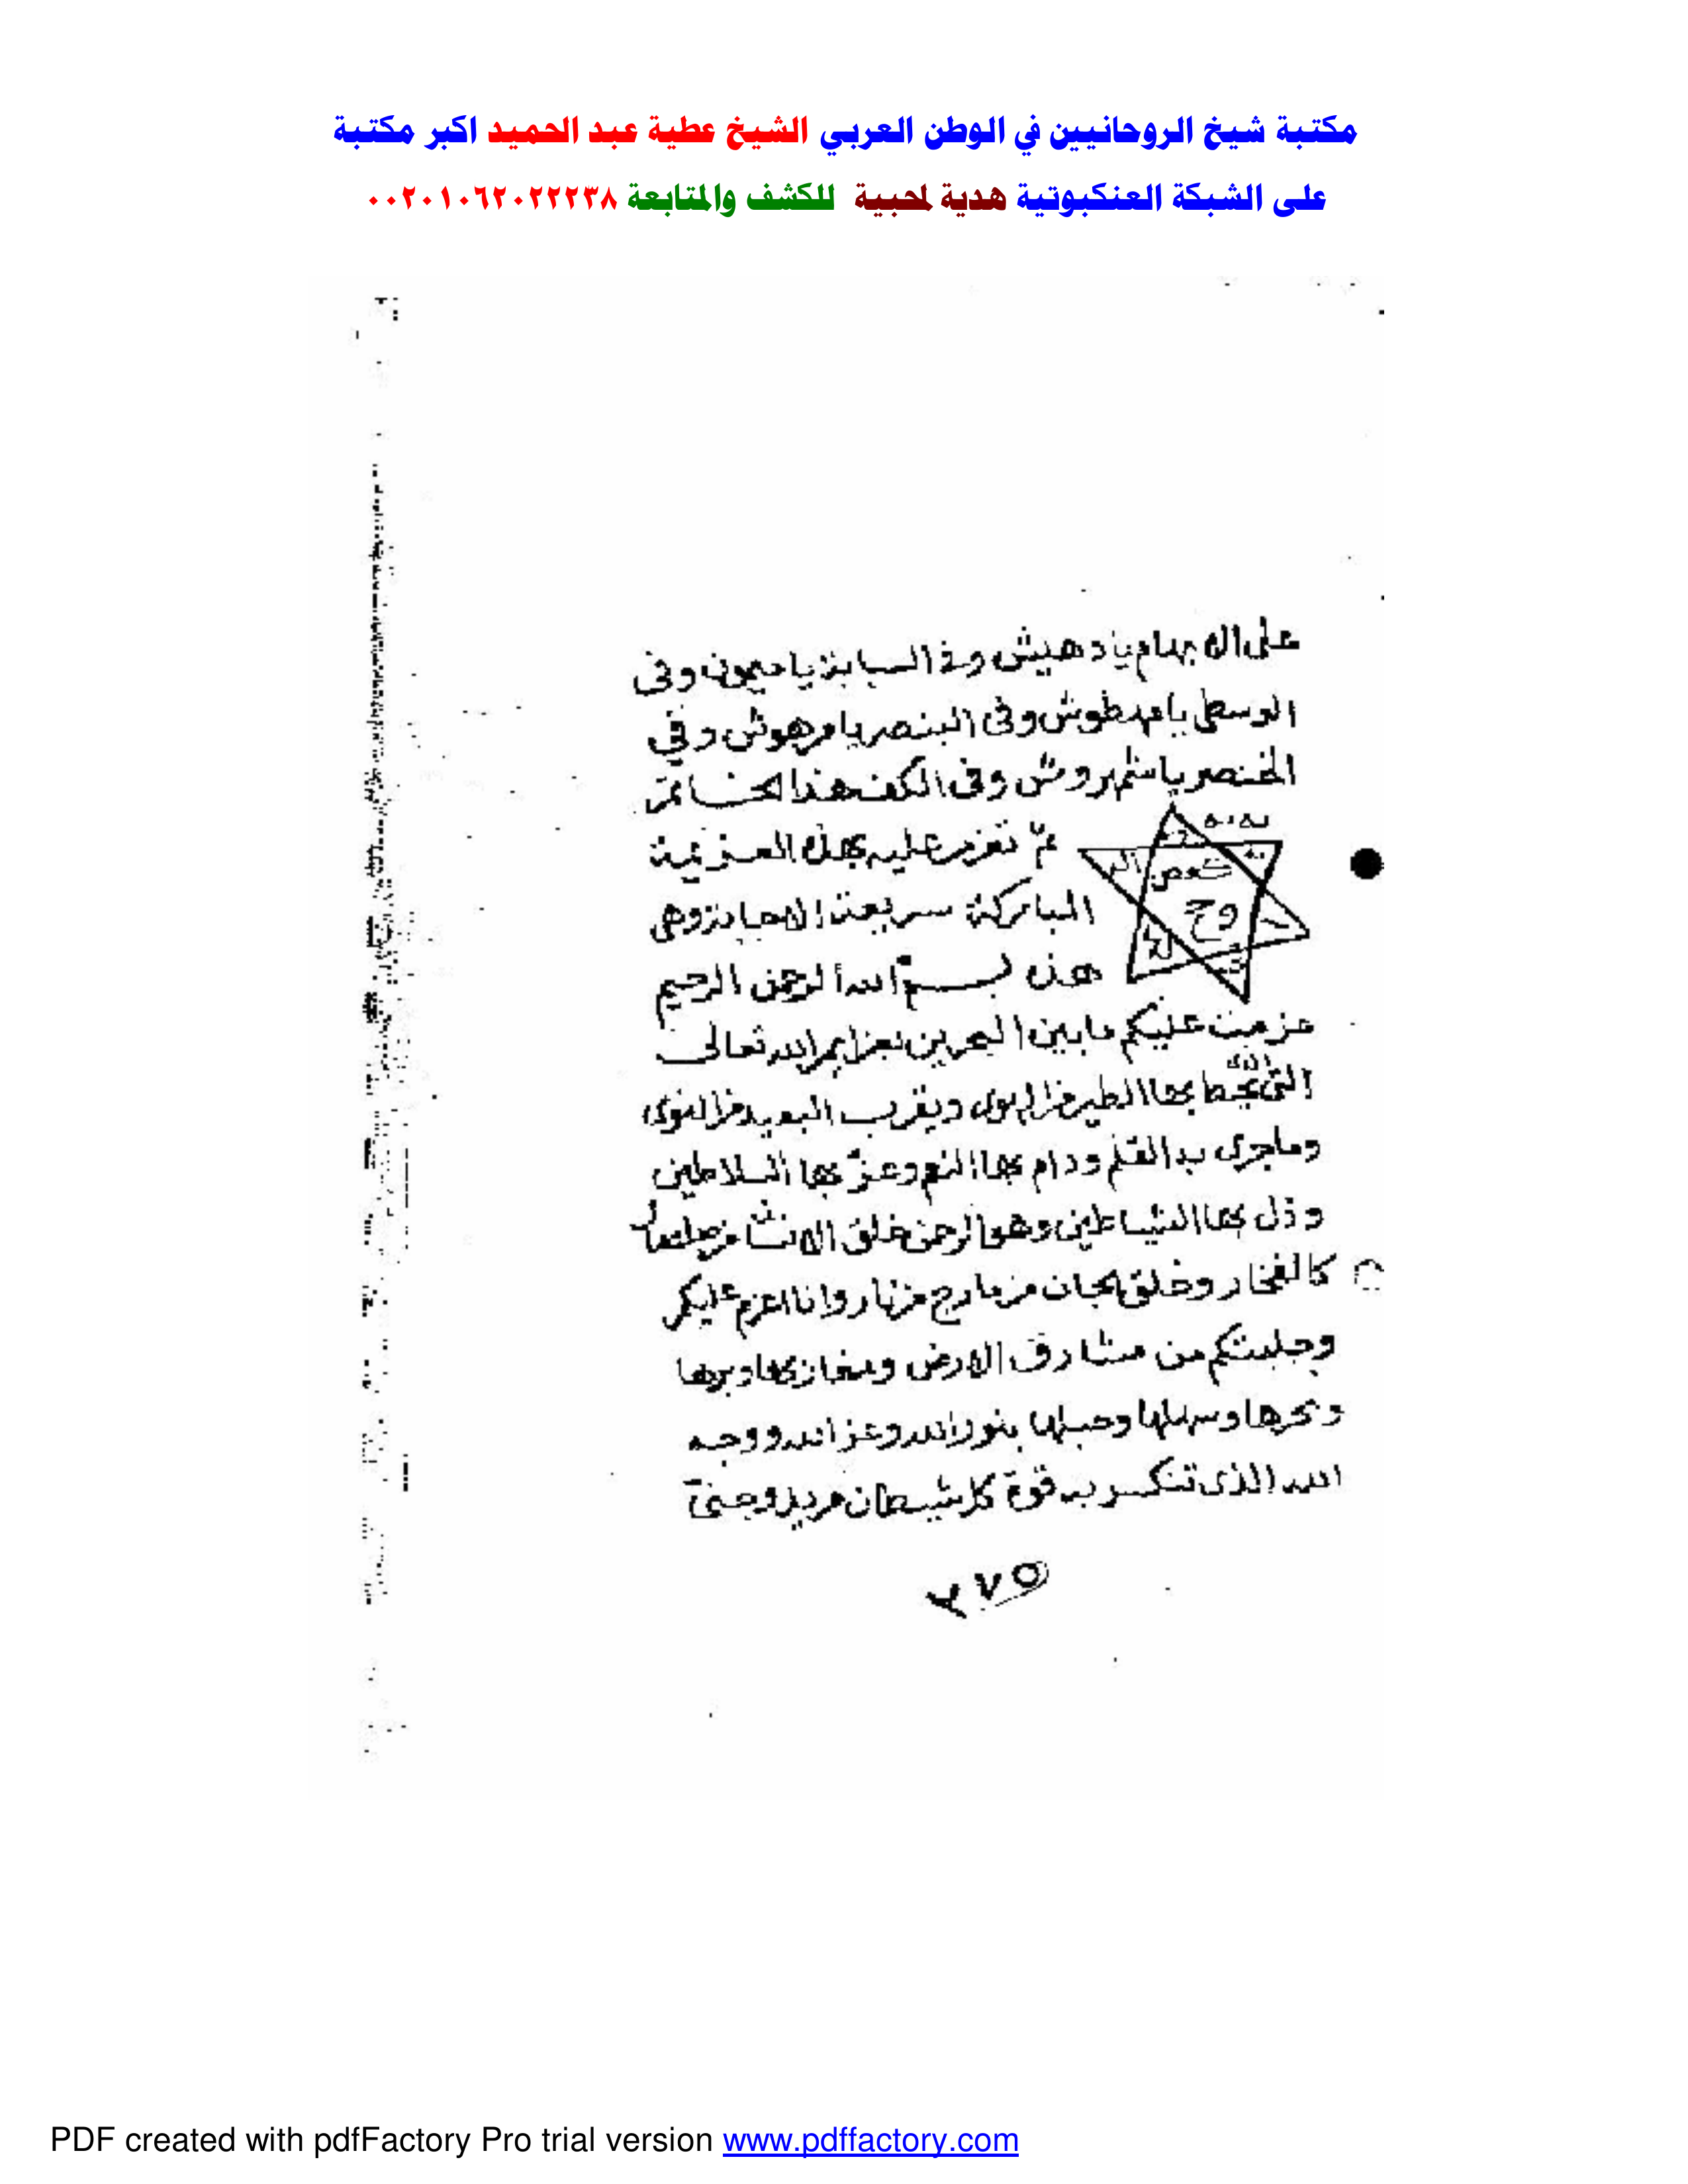 مكتبة شيخ الروحانيين في الوطن العربي الشيخ عطية عبد الحميد اكبر مكتبة
على الشبكة العنكبوتية هدية لمحبية للكشف والمتابعة ٠٠٢٠١٠٦٢٠٢٢٢٣٨
على الابهام يا دهيش وفى السبابة يا ميمون وفى
الوسطى يا مهطوش وفى البنصر يا مرهوش وفي
الخنصر يا شمهروش وفى الكف هذا الخاتم
ثم تعزم عليه بهذه العزيمة
المباركة سريعة الاجابة وهى
كعص
وح
هذه بسم الله الرحمن الرحيم
عزمت عليكم مابين البحرين بعزايم الله تعالى
التى بها الطير من الهوى ويقرب البعيد من النوى
وماجرى به القلم ودام بها النعم وعز بها السلاطين
وذل بها الشياطين وهو الرحمن خلق الانسا من صلصال
كالفخار وخلق الجان من مارج من نار وانا اعزم عليكم
وجلبتكم من مشارق الارض ومغاربها وبرها
وبحرها وسهلها وجبلها بنور الله وعز الله ووجه
الله الذى تنكسر به قوة كل شيطان مريد وجنى
٢٧٥
PDF created with pdfFactory Pro trial version www.pdffactory.com